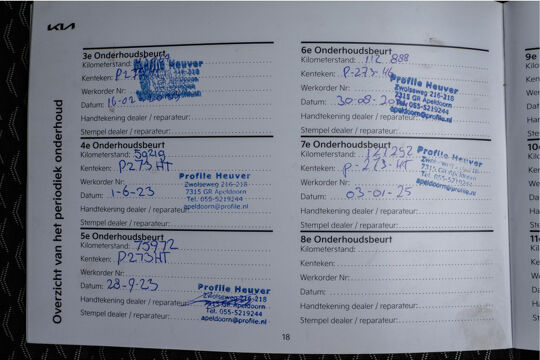 KIA
Overzicht van het periodiek onderhoud
3e Onderhoudsbeurt
Kilometerstand:
Kenteken: P273
Werkorder Nr:
Datum: 16-02
Handtekening dealer / reparateur:
Stempel dealer / reparateur:
Profile Heuver
4e Onderhoudsbeurt
Kilometerstand: 59219
Kenteken: P273HT
Werkorder Nr:
Datum: 1-6-23
Handtekening dealer / reparateur:
Stempel dealer / reparateur:
Profile Heuver
Zwolseweg 216-218
7315 GR Apeldoorn
Tel. 055-5219244
apeldoorn@profile.nl
5e Onderhoudsbeurt
Kilometerstand: 75972
Kenteken: P273HT
Werkorder Nr:
Datum: 28-9-23
Handtekening dealer / reparateur:
Stempel dealer / reparateur:
Profile Heuver
Zwolseweg 216-218
7315 GR Apeldoorn
Tel. 055-5219244
apeldoorn@profile.nl
6e Onderhoudsbeurt
Kilometerstand: 112 888
Kenteken: P-273-
Werkorder Nr:
Datum: 30-08-20
Handtekening dealer / reparateur:
Stempel dealer / reparateur:
Profile Heuver
Zwolseweg 216-218
7315 GR Apeldoorn
Tel. 055-5219244
apeldoorn@profile.nl
7e Onderhoudsbeurt
Kilometerstand: 121252
Kenteken: P-273-HT
Werkorder Nr:
Datum: 03-01-25
Handtekening dealer / reparateur:
Stempel dealer / reparateur:
Profile Heuver
7315 GR Apeldoorn
Tel. 055-5219244
apeldoorn@profile.nl
8e Onderhoudsbeurt
Kilometerstand:
Kenteken:
Werkorder Nr:
Datum:
Handtekening dealer / reparateur:
Stempel dealer / reparateur:
18
9e